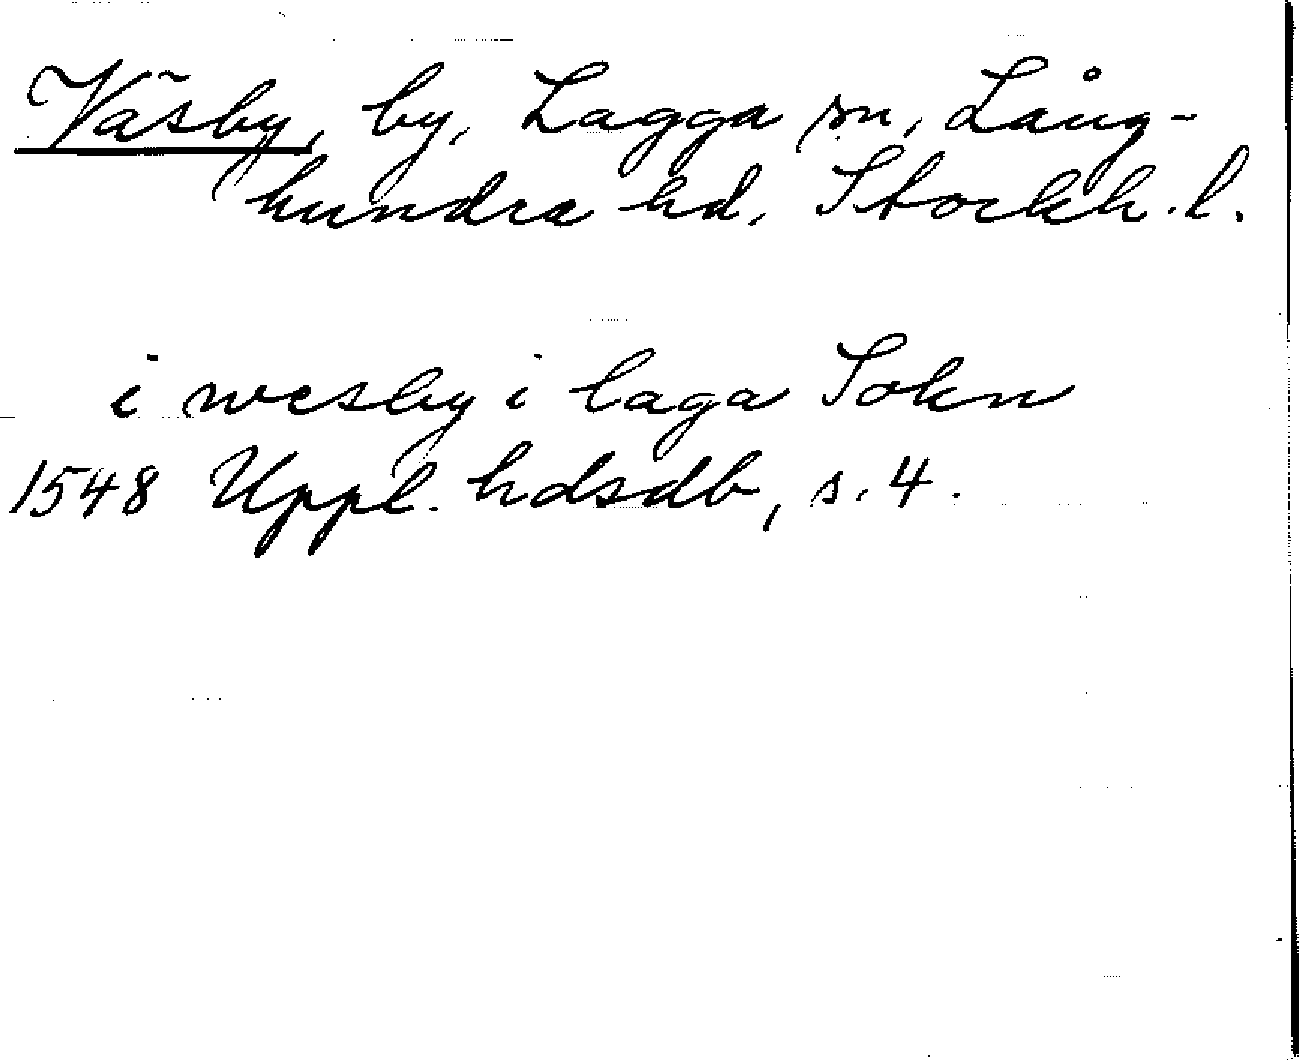 Väsby, by, Lagga sn, Lång-
hundra hd, Stockh. l.
i wesby i laga Sokn
1548 Uppl. hdsdb, s. 4.